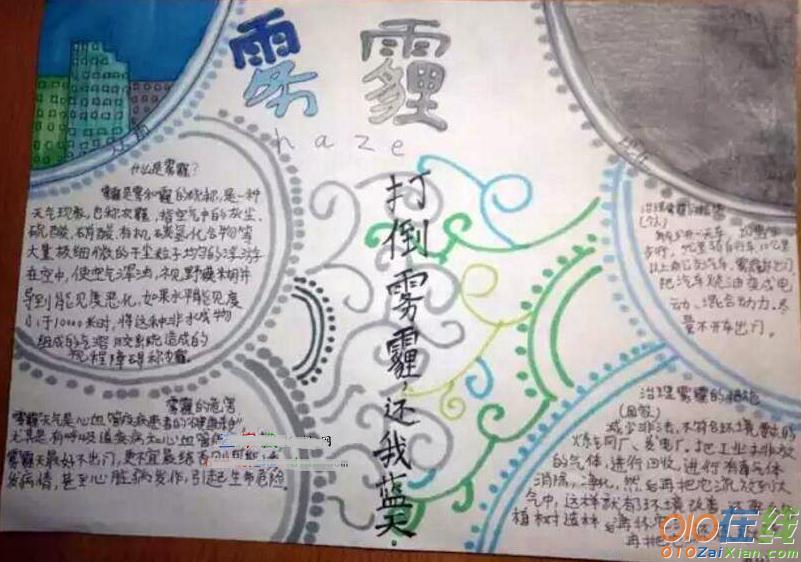 雾霾
haze
什么是雾霾?
雾霾是雾和霾的统称,是一种
天气现象,也称灰霾,指空气中的灰尘、
硫酸、硝酸、有机碳氢化合物等
大量极细微的干尘粒子均匀的浮游
在空中,使空气浑浊,视野模糊并
导致能见度恶化,如果水平能见度
小于10000米时,将这种非水成物
组成的气溶胶系统造成的
视程障碍称灰霾。
雾霾的危害
雾霾天气是心血管疾病患者的"健康杀手"
尤其是有呼吸道疾病和心血管
雾霾天最好不出门,更不宜晨练否则可能
发病情,甚至心脏病发作,引起生命危险。
打倒雾霾,还我蓝天.
治理雾霾的措施
(个人)
步行,
以上办公交汽车,雾霾好出门
把汽车烧油变成电
动、混合动力.尽
量不开车出门。
治理雾霾的措施
(国家)
减少非法,不符合环境要求的
炼车间厂、发电厂。把工业于排放
的气体,进行回收,进行有毒气体
消除,净化,然后再把它沉放到大
气中,这样就都环境改善
植树造林
再把
010在线
010ZaiXian.com